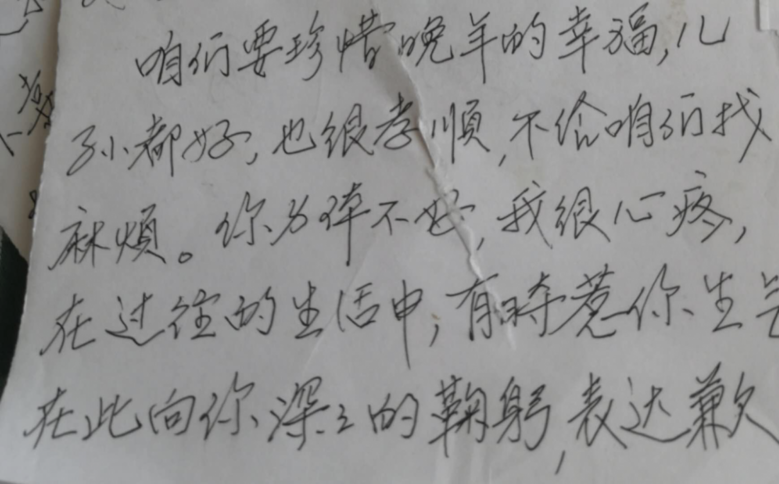 咱们要珍惜晚羊的幸福,儿
孙都好,也很孝顺,不给咱们找
麻烦。你为体不好,我很心疼,
在过往的生活中,有时惹你生
在此向你深々的鞠躬,表达歉